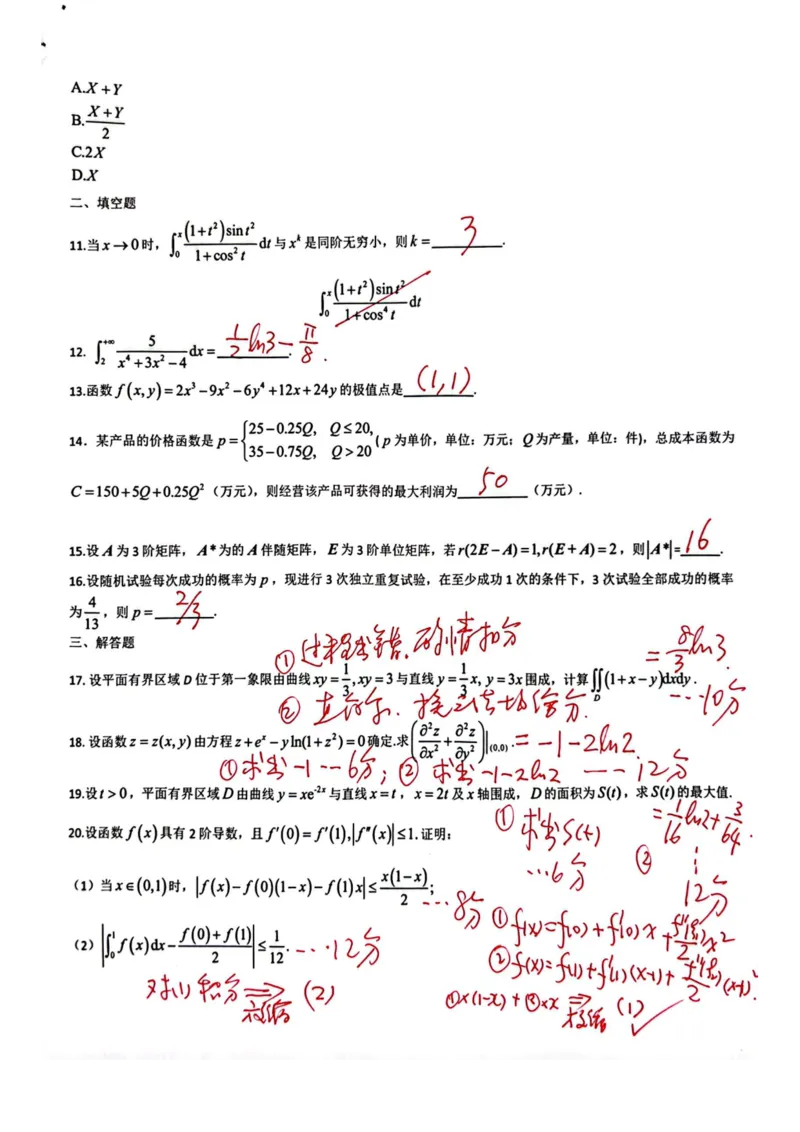 A.X+Y
B.(X+Y)/2
C.2X
D.X
二、填空题
11.当x→0时，∫₀ˣ (1+t²)sint²/(1+cos²t) dt与xᵏ是同阶无穷小，则k=3.
∫₀ˣ (1+t²)sint²/(1+cos⁴t) dt
12. ∫₂^{+∞} 5/(x⁴+3x²−4) dx= 1/2 ln3−π/8.
13.函数f(x,y)=2x³−9x²−6y⁴+12x+24y的极值点是(1,1).
14. 某产品的价格函数是p={25−0.25Q, Q≤20, 35−0.75Q, Q>20 (p为单价，单位：万元；Q为产量，单位：件)，总成本函数为
C=150+5Q+0.25Q²（万元），则经营该产品可获得的最大利润为50（万元）.
15.设A为3阶矩阵，A*为的A伴随矩阵，E为3阶单位矩阵，若r(2E−A)=1,r(E+A)=2，则|A*|=16.
16.设随机试验每次成功的概率为p，现进行3次独立重复试验，在至少成功1次的条件下，3次试验全部成功的概率
为4/13，则p=2/3.
三、解答题
①过程出错,酌情扣分
17. 设平面有界区域D位于第一象限由曲线xy=1/3,xy=3与直线y=1/3 x, y=3x围成，计算∬_D(1+x−y)dxdy.
=8/3 ln3. ···10分
② 直角尔、换元法均给分.
18. 设函数z=z(x,y)由方程z+eˣ−yln(1+z²)=0确定.求(∂²z/∂x²+∂²z/∂y²)|(0,0). =−1−2ln2.
①求出−1···6分; ②求出−1−2ln2 ——12分
19.设t>0，平面有界区域D由曲线y=xe⁻²ˣ与直线x=t，x=2t及x轴围成，D的面积为S(t)，求S(t)的最大值.
=1/16 ln2+3/64.
① 求出S(t)
···6分
② ⋮
12分
20.设函数f(x)具有2阶导数，且f′(0)=f′(1),|f″(x)|≤1.证明：
（1）当x∈(0,1)时，|f(x)−f(0)(1−x)−f(1)x|≤x(1−x)/2; ···8分
①f(x)=f(0)+f′(0)x+f″(ξ₁)/2 x²
（2）|∫₀¹f(x)dx−(f(0)+f(1))/2|≤1/12. ···12分
②f(x)=f(1)+f′(1)(x−1)+f″(ξ₂)/2 (x−1)².
对(1)积分⇒放缩 (2)
①x(1−x)+②xx ⇒放缩 (1)✓